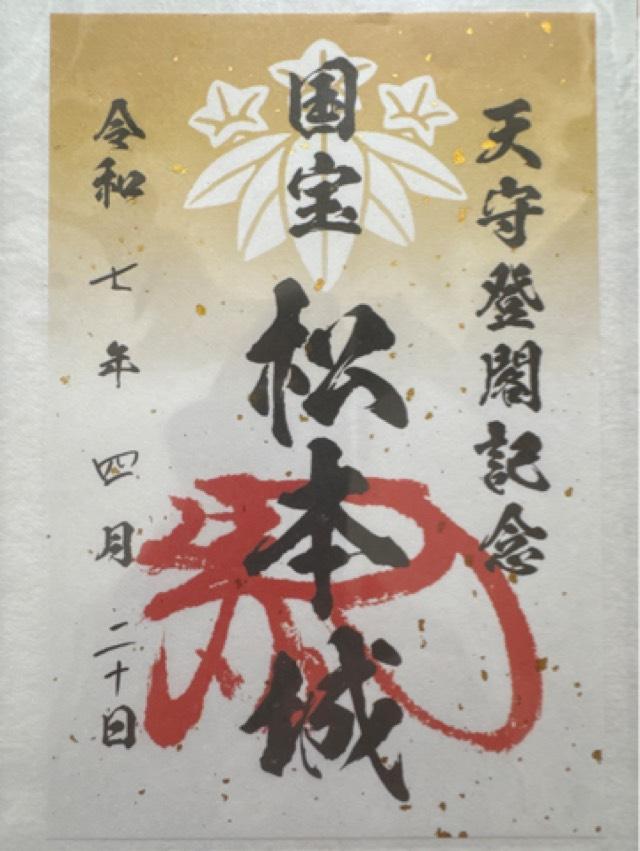 天守登閣記念
国宝
松本城
令和七年四月二十日